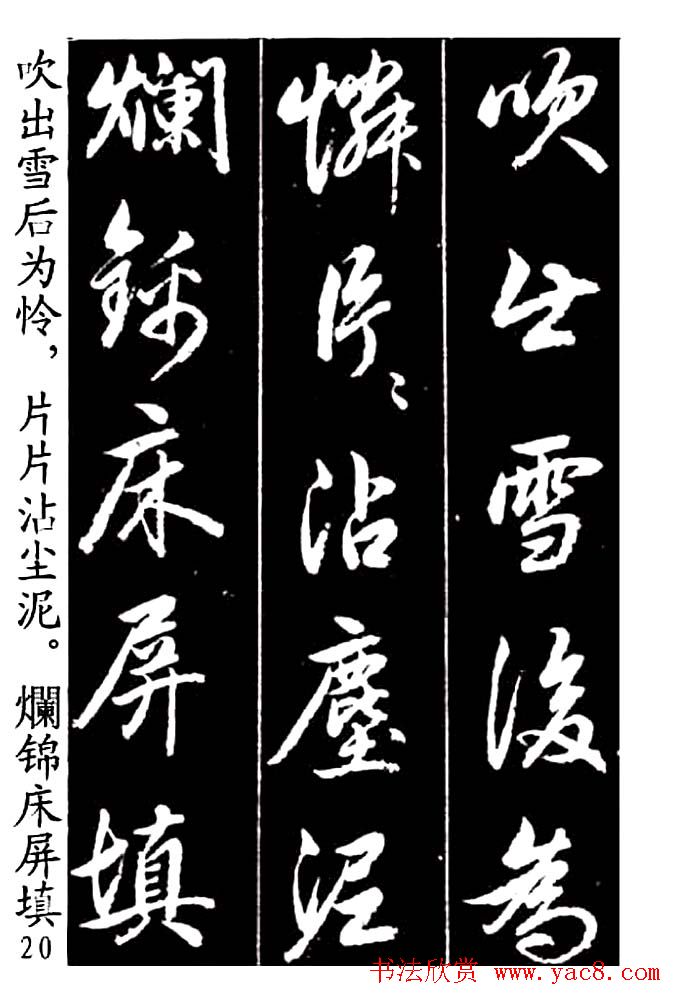 吹出雪後為
憐片〻沾塵泥
爛錦床屏填
吹出雪后为怜，片片沾尘泥。爛锦床屏填
20
书法欣赏 www.yac8.com